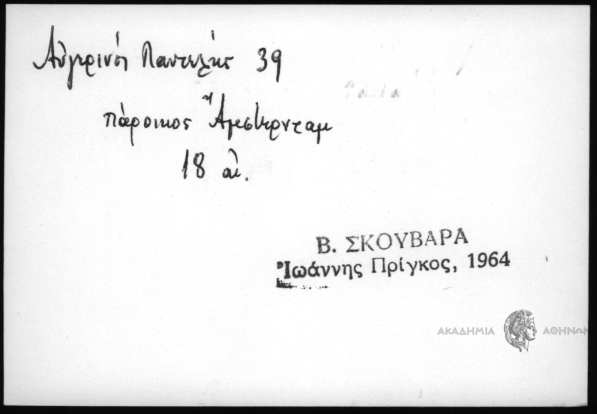 Αὐγερινός Παντελής 39
πάροικος Ἄμστερνταμ
18 αἰ.
Β. ΣΚΟΥΒΑΡΑ
Ἰωάννης Πρίγκος, 1964
ΑΚΑΔΗΜΙΑ ΑΘΗΝΩΝ